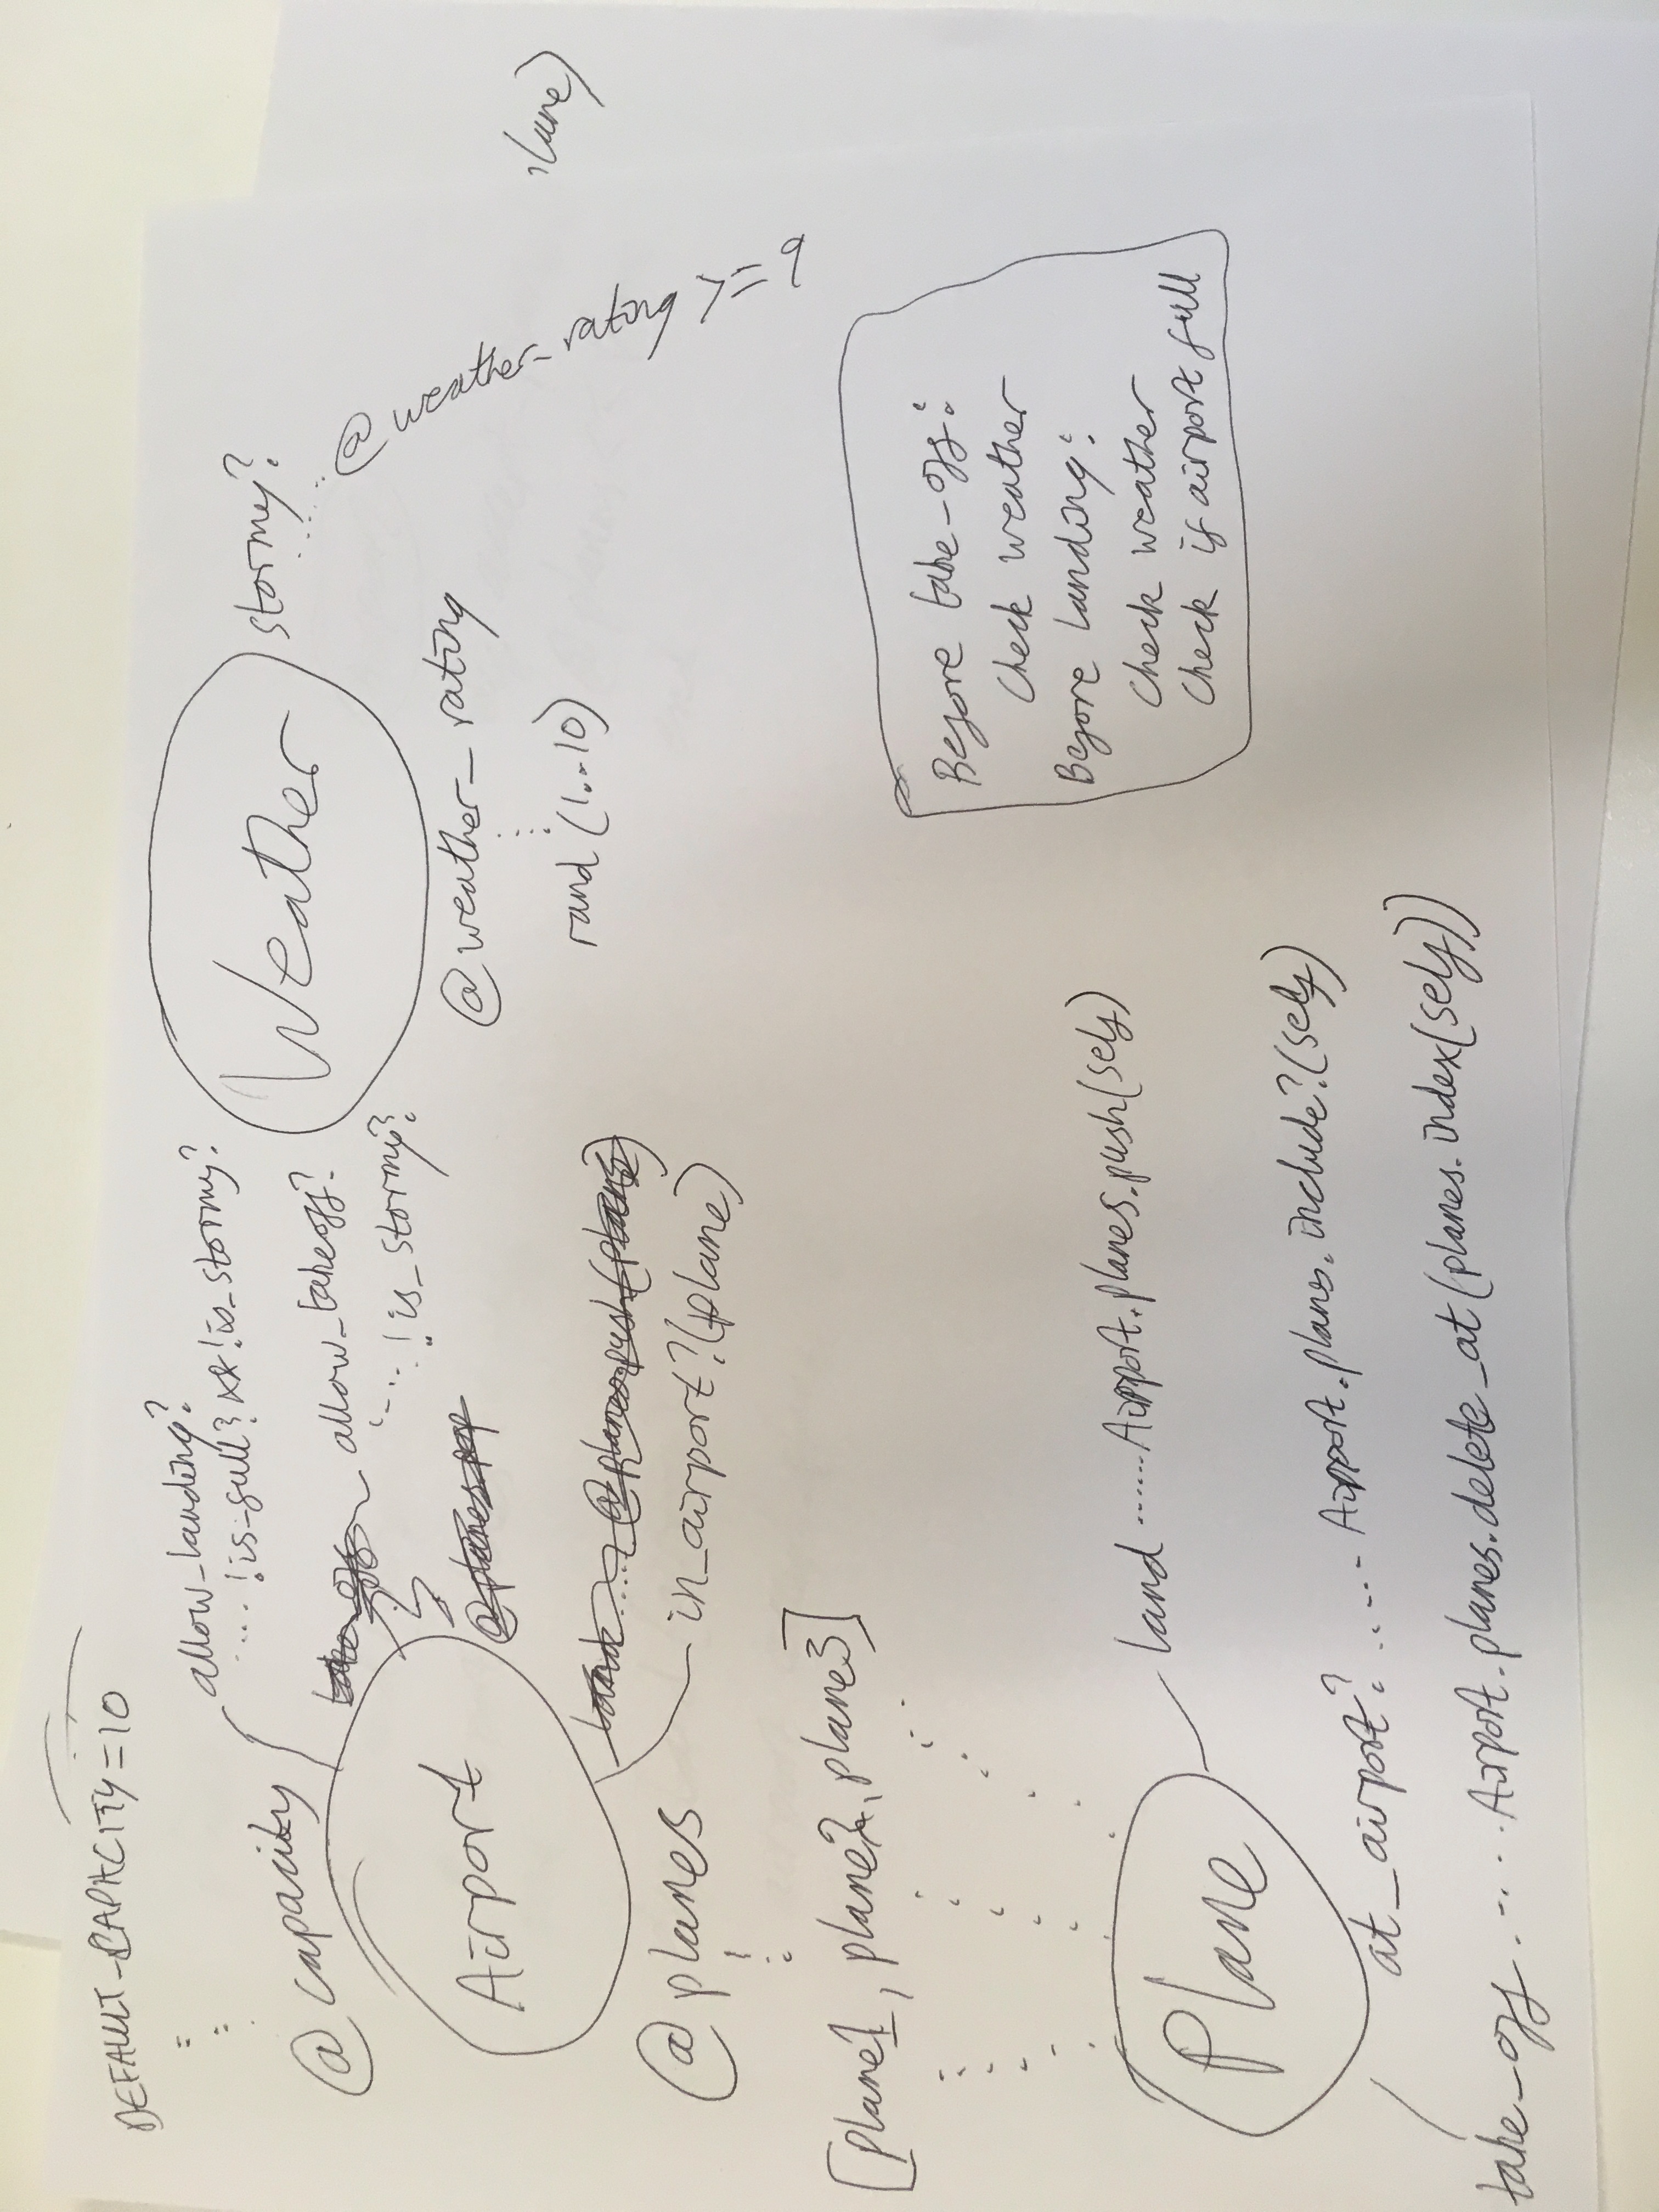 DEFAULT_CAPACITY=10
@capacity
allow_landing?
.... !is-full? && !is_stormy?
allow_takeoff?
.... !is_stormy?
Airport
@planespop
@planes.push(plane)
in_airport?(plane)
@planes
[plane1, plane2, plane3]
Weather
stormy?
@weather_rating >= 9
@weather_rating
rand (1..10)
lane)
Before take-off:
Check weather
Before landing:
Check weather
Check if airport full
Plane
land ...... Airport.planes.push(self)
at_airport? ..... Airport.planes.include?(self)
take_off ...... Airport.planes.delete_at(planes.index(self))